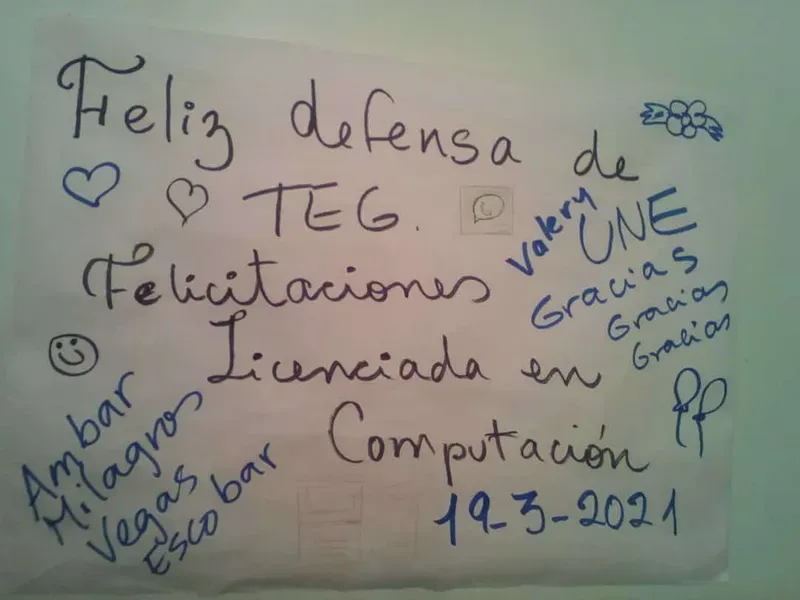 Feliz defensa de
TEG.
Felicitaciones
Licenciada en
Computación
19-3-2021
Valery
UNE
Gracias
Gracias
Gracias
Ambar
Milagros
Vegas
Escobar